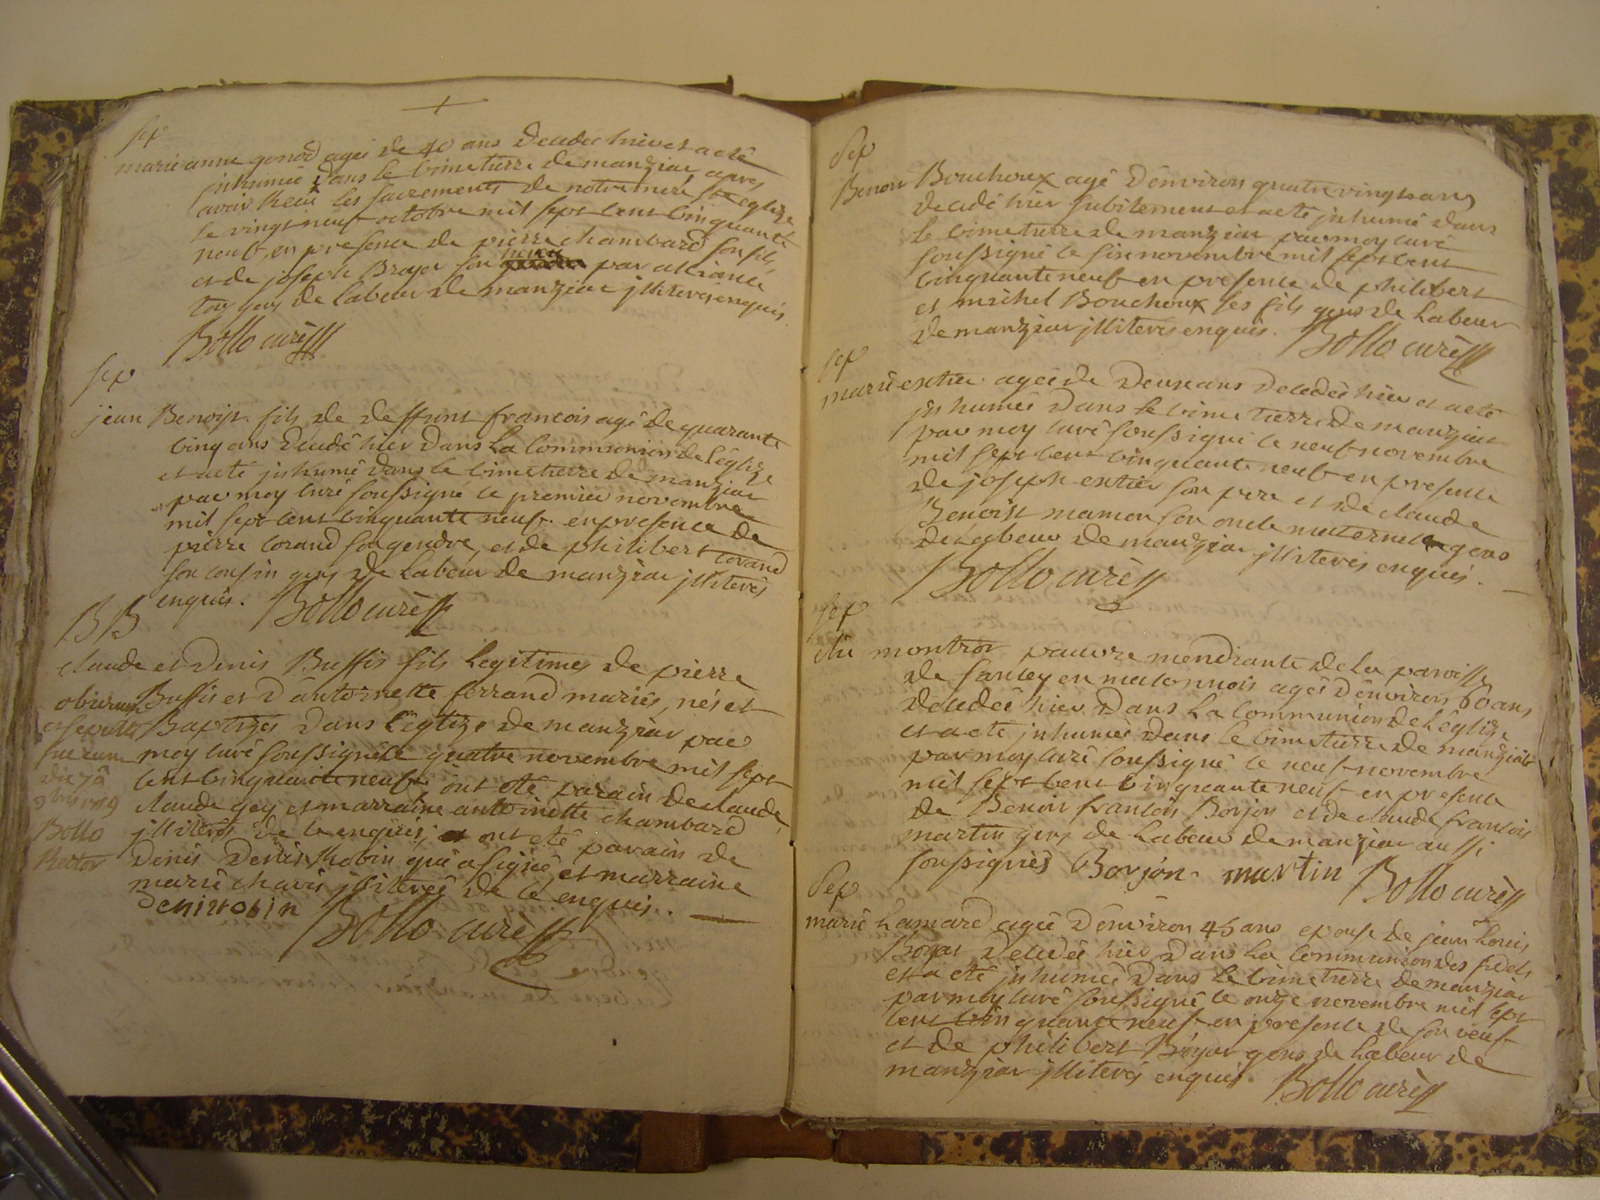 Sep
marie anne genod agée de 40 ans decedée hier et a eté
inhumée dans le cimetierre de manziat apres
avoir recu les sacrements de notre mere ste eglize
le vingt neuf octobre mil sept cent cinquante
neuf en presence de pierre chambard son fils
et de joseph Broyer son par alliance
tous gens de labeur de manziat illiterés enquis
Bollo curé
Sep
jean Benoist fils de deffunt francois agé de quarante
cinq ans decedé hier dans la Communion de l'église
et a eté inhumé dans le cimetierre de manziat
par moy curé soussigné le premier novembre
mil sept cent cinquante neuf en presence de
pierre corand son gendre, et de philibert corand
son cousin gens de Labeur de manziat illiterés
enquis. Bollo curé
BB
claude et Denis Buffis fils legitimes de pierre
Buffis et d'antoinette ferrand mariés, nés et
Baptizés dans l'églize de manziat par
moy curé soussigné le quatre novembre mil sept
cent cinquante neuf ont eté parain de claude
claude gey et marraine antoinette chambard
illiterés de ce enquis, et ont eté parain de
Denis Denis Robin qui a signé et marraine
marie chavis illiterée de ce enquis.
Denis robin
Bollo curé
obierunt
et sepulti
fuerunt
die 7a
9bris 1759
Bollo
Rector
Sep
Benoit Bouchoux agé d'environ quatre vingts ans
decedé hier subitement et a eté inhumé dans
le cimetierre de manziat par moy curé
soussigné le six novembre mil sept cent
cinquante neuf en presence de philibert
et michel Bouchoux ses fils gens de Labeur
de manziat illiterés enquis. Bollo curé
Sep
marie extier agée de Deux ans Decedée hier et a eté
inhumée dans le cimetierre de manziat
par moy curé soussigné le neuf novembre
mil sept cent cinquante neuf en presence
de joseph extier son pere et de claude
Benoist mamon son oncle maternel gens
de Labeur de manziat illiterés enquis.
Bollo curé
Sep
montror pauvre mendiante de la paroisse
de sanley en maconnois agée d'environ 60 ans
decedée hier dans la Communion de L'églize
et a eté inhumée dans le cimetierre de manziat
par moy curé soussigné le neuf novembre
mil sept cent cinquante neuf en presence
de Benoit francois Borjon et de claude francois
martin gens de Labeur de manziat aussi
soussignés Borjon martin Bollo curé
Sep
marie Lamard agée d'environ 45 ans epouse de jean Louis
Boyat, decedée hier dans La Communion des fidels
et a eté inhumée dans le cimetierre de manziat
par moy curé soussigné le onze novembre mil sept
cent cinquante neuf en presence de son veuf
et de philibert Boyat gens de Labeur de
manziat illiterés enquis. Bollo curé